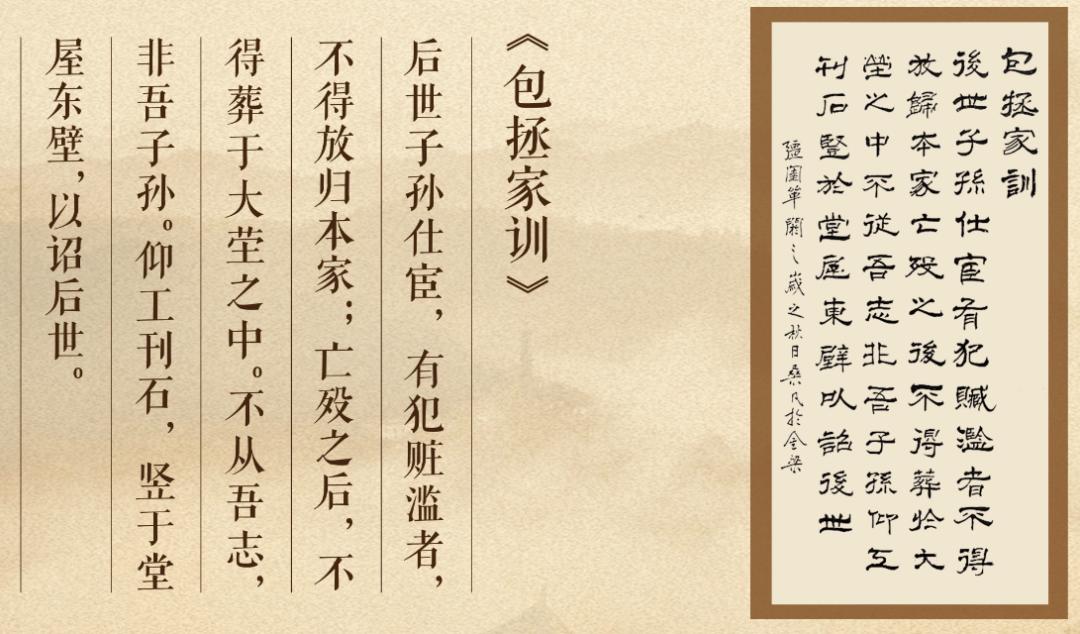 包拯家訓
後世子孫仕宦有犯贓濫者不得
放歸本家亡歿之後不得葬於大
塋之中不從吾志非吾子孫仰工
刊石豎於堂屋東壁以詔後世
疆圉單閼之歲之秋日桑於金梁
《包拯家训》
后世子孙仕宦，有犯赃滥者，
不得放归本家；亡殁之后，不
得葬于大茔之中。不从吾志，
非吾子孙。仰工刊石，竖于堂
屋东壁，以诏后世。